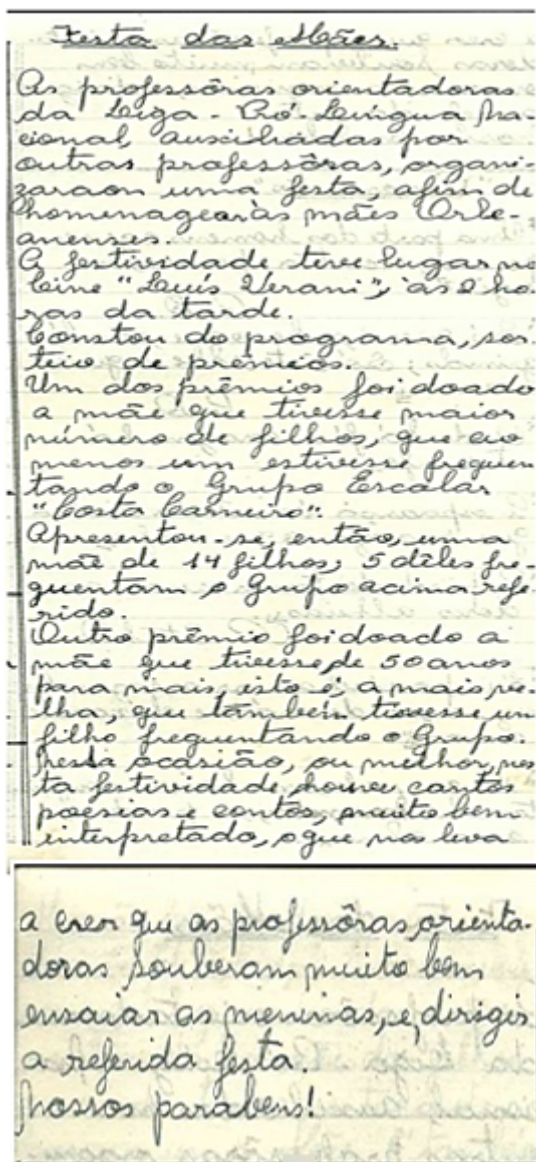 Festa das Mães.
As professôras orientadoras
da Liga - Pró-Língua Na-
cional, auxiliadas por
outras professôras, organi-
zaraom uma festa, afim de
homenagear às mães Orle-
anenses.
A festividade teve lugar no
Cine "Luís Verani", às 2 ho-
ras da tarde.
Constou do programa, sor
teio de prêmios.
Um dos prêmios foi doado
a mãe que tivesse maior
número de filhos, que ao
menos um estivesse frequen
tando o Grupo Escolar
"Costa Carneiro".
Apresentou-se, então, uma
mãe de 14 filhos, 5 dêles fre-
quentam o Grupo acima refe
rido.
Outro prêmio foi doado a
mãe que tivesse, de 50 anos
para mais, isto é, a mais ve-
lha, que também tivesse um
filho frequentando o Grupo.
Nesta ocasião, ou melhor, nes
ta festividade, houve cantos
poesias e contos, muito bem
interpretado, o que nos leva
a crer que as professôras, orienta-
doras souberam muito bem
ensaiar as meninas, e, dirigir
a referida festa.
Nossos parabens!